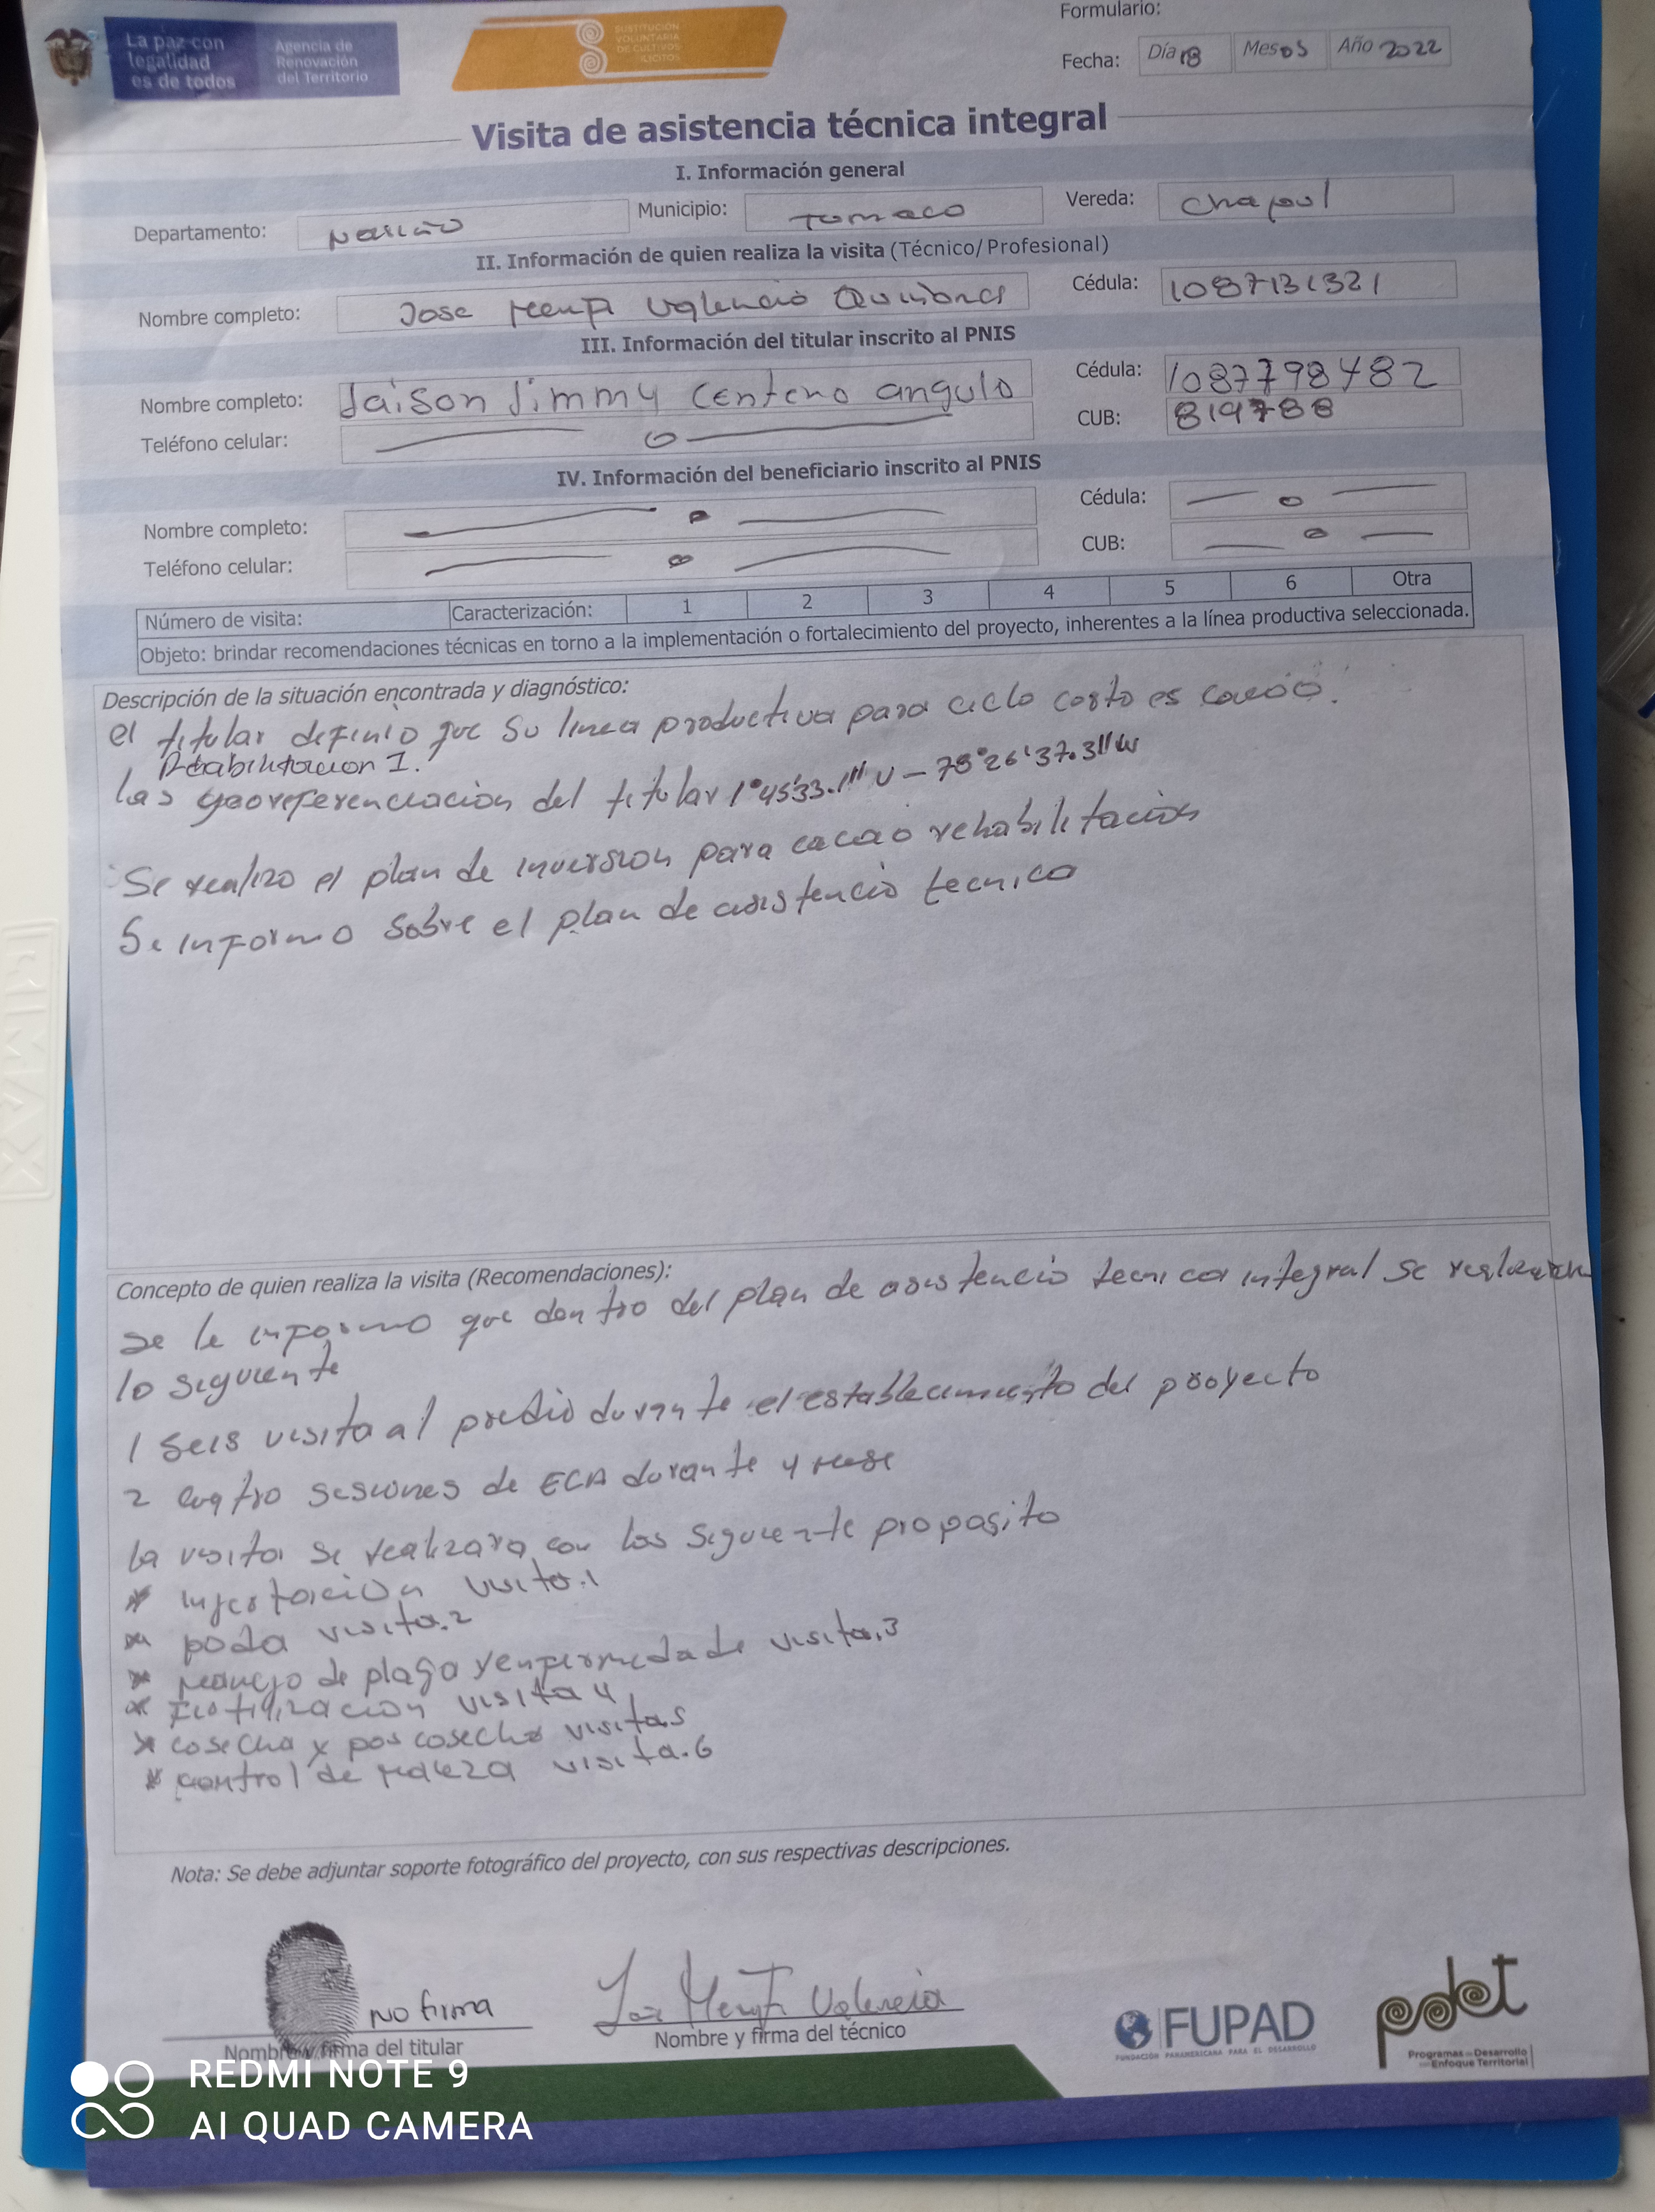 La paz con legalidad es de todos
Agencia de Renovación del Territorio
SUSTITUCIÓN VOLUNTARIA DE CULTIVOS ILÍCITOS
Formulario:
Fecha: Día 18 Mes 05 Año 2022
Visita de asistencia técnica integral
I. Información general
Departamento: Nariño Municipio: Tumaco Vereda: Chapul
II. Información de quien realiza la visita (Técnico/ Profesional)
Nombre completo: Jose Valencia Quiñones Cédula: 1087131321
III. Información del titular inscrito al PNIS
Nombre completo: Jaison Jimmy Centeno angulo Cédula: 1087798482
Teléfono celular: — o — CUB: 819788
IV. Información del beneficiario inscrito al PNIS
Nombre completo: — o — Cédula: — o —
Teléfono celular: — o — CUB: — o —
Número de visita: Caracterización: 1 2 3 4 5 6 Otra
Objeto: brindar recomendaciones técnicas en torno a la implementación o fortalecimiento del proyecto, inherentes a la línea productiva seleccionada.
Descripción de la situación encontrada y diagnóstico:
el titular definio que su linea productiva para ciclo corto es cacao.
Rehabilitacion 1.
las georeferenciacion del titular 1°45'33.1" N - 78°26'37.3"W
Se realizo el plan de inversion para cacao rehabilitacion
Se informo sobre el plan de asistencia tecnica
Concepto de quien realiza la visita (Recomendaciones):
se le informo que dentro del plan de asistencia tecnica integral se realizaran
lo siguiente
1 seis visita al predio durante el establecimiento del proyecto
2 cuatro sesiones de ECA durante 4 mese
la visita se realizara con los siguiente proposito
* injertacion visita.1
* poda visita.2
* manejo de plaga y enfermedade visita.3
* fertilizacion visita 4
* cosecha y poscosecha visita5
* control de maleza visita.6
Nota: Se debe adjuntar soporte fotográfico del proyecto, con sus respectivas descripciones.
No firma
Nombre y firma del titular
Valencia
Nombre y firma del técnico
FUPAD
FUNDACIÓN PANAMERICANA PARA EL DESARROLLO
pdet
Programas de Desarrollo con Enfoque Territorial
REDMI NOTE 9
AI QUAD CAMERA